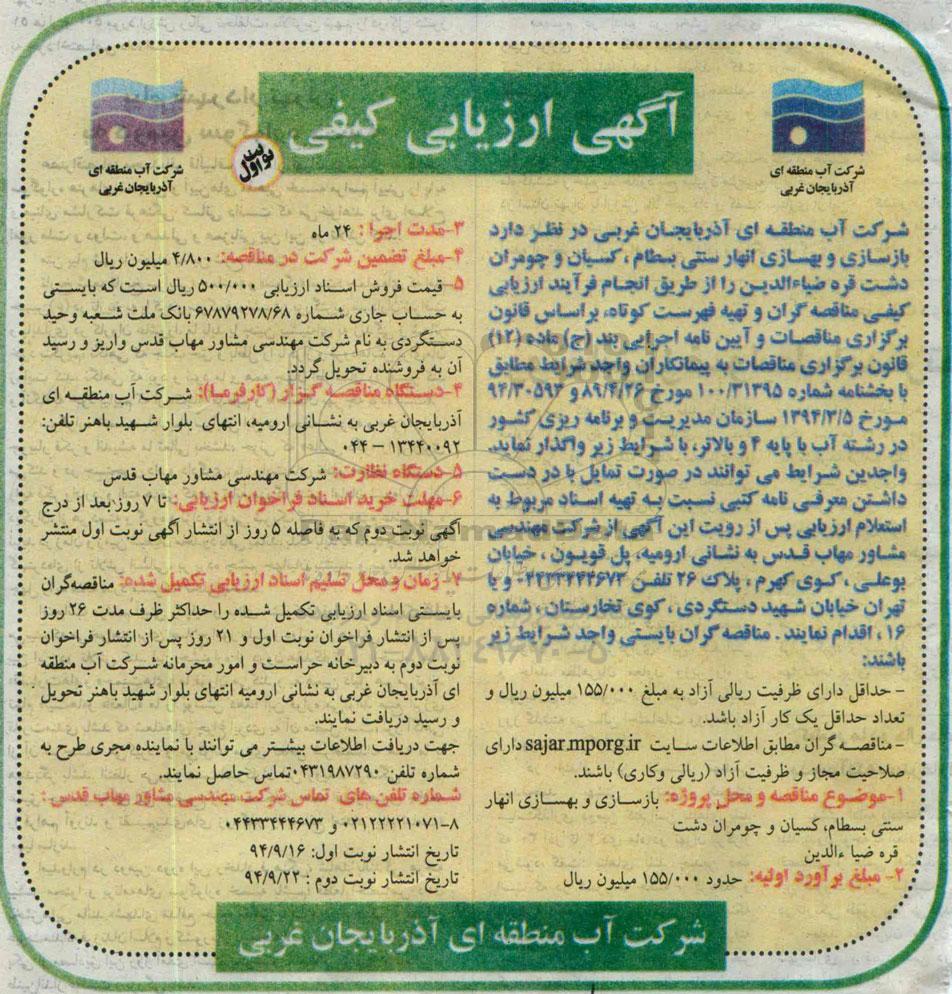 آگهی ارزیابی کیفی
نوبت اول
شرکت آب منطقه ای
آذربایجان غربی
شرکت آب منطقه ای
آذربایجان غربی
شرکت آب منطقه ای آذربایجان غربی در نظر دارد
بازسازی و بهسازی انهار سنتی بسطام ، کسیان و چومران
دشت قره ضیاءالدین را از طریق انجام فرآیند ارزیابی
کیفی مناقصه گران و تهیه فهرست کوتاه، براساس قانون
برگزاری مناقصات و آیین نامه اجرایی بند (ج) ماده (۱۲)
قانون برگزاری مناقصات به پیمانکاران واجد شرایط مطابق
با بخشنامه شماره ۱۰۰/۳۱۳۹۵ مورخ ۸۹/۴/۲۶ و ۹۴/۳۰۵۹۲
مورخ ۱۳۹۴/۳/۵ سازمان مدیریت و برنامه ریزی کشور
در رشته آب با پایه ۴ و بالاتر، با شرایط زیر واگذار نماید.
واجدین شرایط می توانند در صورت تمایل با در دست
داشتن معرفی نامه کتبی نسبت به تهیه اسناد مربوط به
استعلام ارزیابی پس از رویت این آگهی از شرکت مهندسی
مشاور مهاب قدس به نشانی ارومیه، پل قویون ، خیابان
بوعلی ، کوی کهرم ، پلاک ۲۶ تلفن ۰۴۴۳۳۴۴۴۶۷۳ و یا
تهران خیابان شهید دستگردی ، کوی تخارستان ، شماره
۱۶ ، اقدام نمایند . مناقصه گران بایستی واجد شرایط زیر
باشند:
- حداقل دارای ظرفیت ریالی آزاد به مبلغ ۱۵۵/۰۰۰ میلیون ریال و
تعداد حداقل یک کار آزاد باشد.
- مناقصه گران مطابق اطلاعات سایت sajar.mporg.ir دارای
صلاحیت مجاز و ظرفیت آزاد (ریالی وکاری) باشند.
۱-موضوع مناقصه و محل پروژه: بازسازی و بهسازی انهار
سنتی بسطام، کسیان و چومران دشت
قره ضیا ءالدین
۲- مبلغ برآورد اولیه: حدود ۱۵۵/۰۰۰ میلیون ریال
۳-مدت اجرا : ۲۴ ماه
۴-مبلغ تضمین شرکت در مناقصه: ۴/۸۰۰ میلیون ریال
۵-قیمت فروش اسناد ارزیابی ۵۰۰/۰۰۰ ریال است که بایستی
به حساب جاری شماره ۶۷۸۷۹۲۷۸/۶۸ بانک ملت شعبه وحید
دستگردی به نام شرکت مهندسی مشاور مهاب قدس واریز و رسید
آن به فروشنده تحویل گردد.
۴-دستگاه مناقصه گزار (کارفرما): شرکت آب منطقه ای
آذربایجان غربی به نشانی ارومیه، انتهای بلوار شهید باهنر تلفن:
۱۳۴۴۰۰۹۲ – ۰۴۴
۵-دستگاه نظارت: شرکت مهندسی مشاور مهاب قدس
۶-مهلت خرید اسناد فراخوان ارزیابی: تا ۷ روز بعد از درج
آگهی نوبت دوم که به فاصله ۵ روز از انتشار آگهی نوبت اول منتشر
خواهد شد.
۷-زمان و محل تسلیم اسناد ارزیابی تکمیل شده: مناقصه گران
بایستی اسناد ارزیابی تکمیل شده را حداکثر ظرف مدت ۲۶ روز
پس از انتشار فراخوان نوبت اول و ۲۱ روز پس از انتشار فراخوان
نوبت دوم به دبیرخانه حراست و امور محرمانه شرکت آب منطقه
ای آذربایجان غربی به نشانی ارومیه انتهای بلوار شهید باهنر تحویل
و رسید دریافت نمایند.
جهت دریافت اطلاعات بیشتر می توانند با نماینده مجری طرح به
شماره تلفن ۰۴۳۱۹۸۷۲۹۰تماس حاصل نمایند.
شماره تلفن های تماس شرکت مهندسی مشاور مهاب قدس :
۸-۰۲۱۲۲۲۲۱۰۷۱ و ۰۴۴۳۳۴۴۴۶۷۳
تاریخ انتشار نوبت اول: ۹۴/۹/۱۶
تاریخ انتشار نوبت دوم : ۹۴/۹/۲۲
شرکت آب منطقه ای آذربایجان غربی